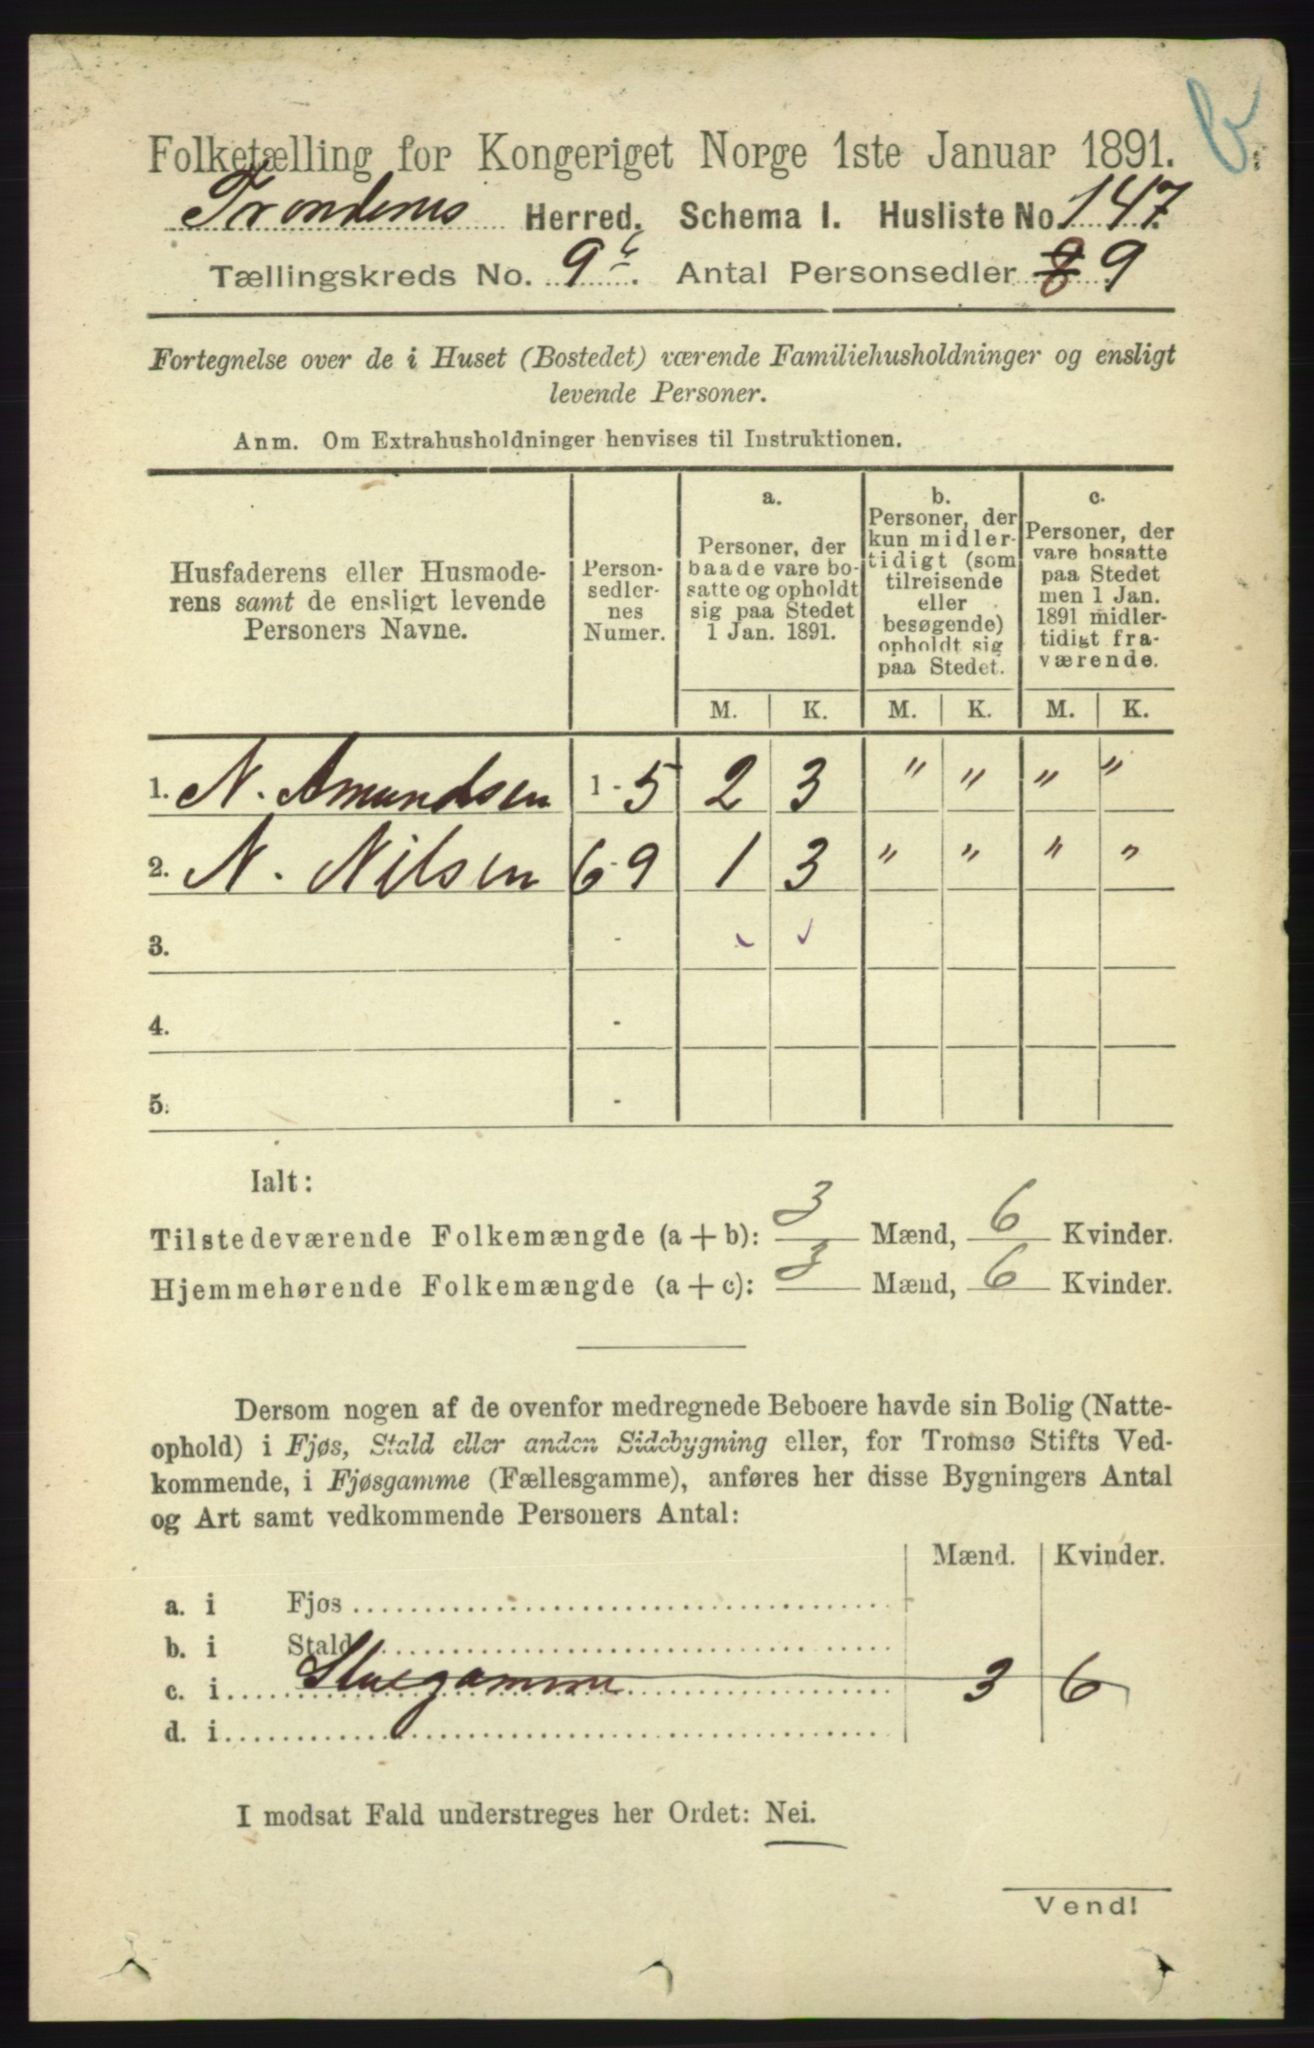 b.
Folketælling for Kongeriget Norge 1ste Januar 1891.
Trondenes Herred. Schema I. Husliste No. 147.
Tællingskreds No. 9c. Antal Personsedler 8 9
Fortegnelse over de i Huset (Bostedet) værende Familiehusholdninger og ensligt
levende Personer.
Anm. Om Extrahusholdninger henvises til Instruktionen.
Husfaderens eller Husmode-
rens samt de ensligt levende
Personers Navne.
Person-
sedler-
nes
Numer.
a.
Personer, der
baade vare bo-
satte og opholdt
sig paa Stedet
1 Jan. 1891.
b.
Personer, der
kun midler-
tidigt (som
tilreisende
eller
besøgende)
opholdt sig
paa Stedet.
c.
Personer, der
vare bosatte
paa Stedet
men 1 Jan.
1891 midler-
tidigt fra-
værende.
M. K. M. K. M. K.
1. N. Amundsen 1-5 2 3 " " " "
2. N. Nilsen 6-9 1 3 " " " "
3. -
4. -
5. -
Ialt:
Tilstedeværende Folkemængde (a + b): 3 Mænd, 6 Kvinder.
Hjemmehørende Folkemængde (a + c): 3 Mænd, 6 Kvinder.
Dersom nogen af de ovenfor medregnede Beboere havde sin Bolig (Natte-
ophold) i Fjøs, Stald eller anden Sidebygning eller, for Tromsø Stifts Ved-
kommende, i Fjøsgamme (Fællesgamme), anføres her disse Bygningers Antal
og Art samt vedkommende Personers Antal:
Mænd. Kvinder.
a. i Fjøs
b. i Stald
c. i Stuegamme 3 6
d. i
I modsat Fald understreges her Ordet: Nei.
Vend!